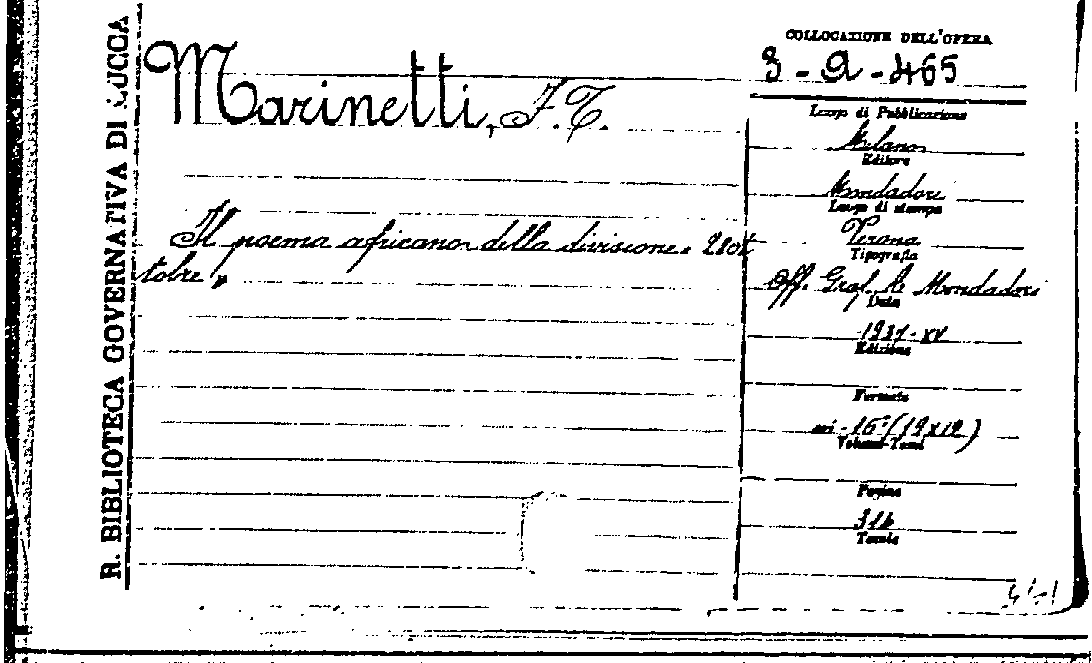 R. BIBLIOTECA GOVERNATIVA DI LUCCA
Marinetti, F. T.
Il poema africano della divisione "28 ot
tobre"
COLLOCAZIONE DELL'OPERA
3-2-465
Luogo di Pubblicazione
Milano
Editore
Mondadori
Luogo di stampa
Verona
Tipografia
Off. Graf. A. Mondadori
Data
1937-XV
Edizione
Formato
in-16°(19x12)
Volumi-Tomi
Pagine
316
Tavole